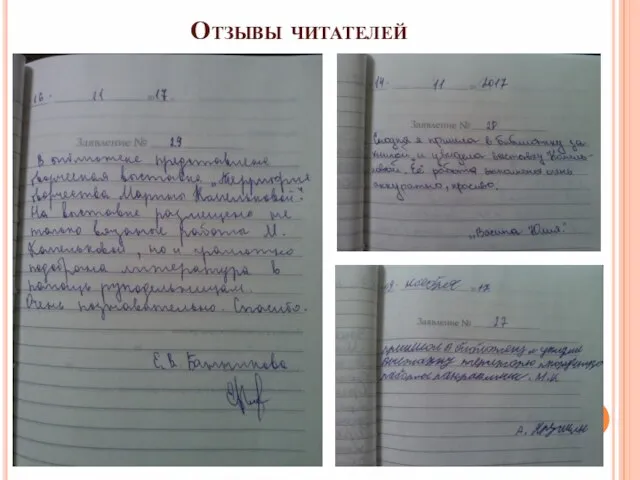 Отзывы читателей
16. 11 17.
Заявление № 29
В библиотеке представлена
творческая выставка „Территория
творчества Марины Каменьковой".
На выставке размещены не
только вязаные работы М.
Каменьковой, но и грамотно
подобрана литература в
помощь рукодельницам.
Очень познавательно. Спасибо.
Е.В.
14. 11 2017
Заявление № 28
Сегодня я пришла в библиотеку за
книгой и увидела выставку
Её работа выполнена очень
аккуратно, красиво.
Юлия"
09. ноября 17
Заявление № 27
пришла в библиотеку и увидела
выставку
работы М.К
А.